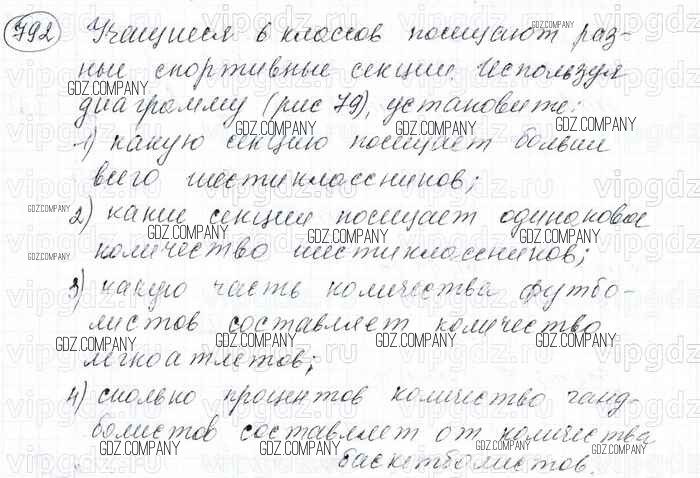 792 Учащиеся 6 классов посещают раз-
ные спортивные секции. Используя
диаграмму (рис 79), установите:
1) какую секцию посещает больше
всего шестиклассников;
2) какие секции посещает одинаковое
количество шестиклассников;
3) какую часть количества футбо-
листов составляет количество
легкоатлетов;
4) сколько процентов количество ганд-
болистов составляет от количества
баскетболистов.